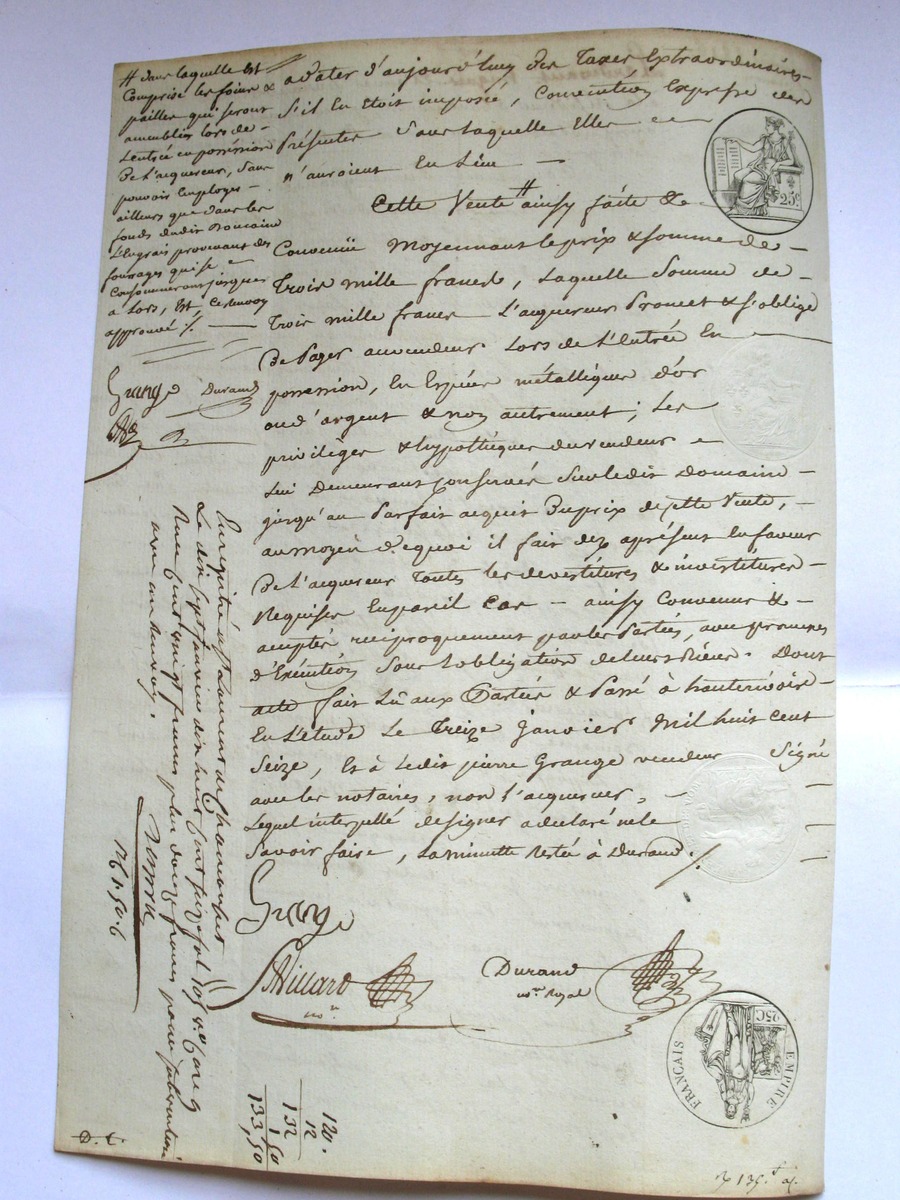 # dans laquelle est
Comprise les foins &
pailles qui seront
ameublis lors de
L'entrée en possession
De L'acquereur, Sans
pouvoir Employer
ailleurs que dans les
fonds dudit Domaine
L'Engrais provenant des
fourrages qui se
Consommeront jusques
à Lors, Est, Ce renvoy
approuvé /.
Grange Durand
adater d'aujourd'huy des Taxes Extraordinaires
S'il En étoit imposée, Convention Expresse des
Présentes Sans Laquelle Elles
n'auroient Eu Lieu
Cette Vente # ainsy faite &
Convenüe Moyennant le prix & somme de
Trois mille francs, Laquelle Somme de
Trois mille francs L'acquereur Promet & s'oblige
De Payer au vendeur Lors de L'Entrée En
possession, En Espèces métalliques d'or
ou d'argent & non autrement; Les
privilèges & hypothèques du vendeur
Lui Demeurant Conservés Sur ledit Domaine
jusqu'au Parfait acquit Du prix de cette Vente,
au moyen De quoi il fait dez àprésent En faveur
De L'acquereur Toutes les devestitures & investitures
Requises En pareil Cas – ainsy Convenus &
acceptés reciproquement par les Parties, avec promesses
d'Exécution Sous L'obligation de leurs Biens. Dont
acte fait Lû aux Parties & Passé à hauterivoire
En L'étude Le Treize Janvier Mil huit cent
Seize, Et à Ledit pierre Grange vendeur Signé
avec les notaires, non l'acquereur,
Lequel interpellé de signer a déclaré ne le
Savoir faire, La minutte Restée à Durand. /.
Grange
Villard
nore
Durand
nore Royal
Enregistré à St Laurent de Chamousset
Le dix Sept janvier dix huit Cent Seize fol
Reçu Cent vingt francs plus douze francs pour subvention
avec un renvoy.
176 1.50.6
120.
12
132
1 50
133,50
D. C.
25C
25C
EMPIRE
FRANÇAIS